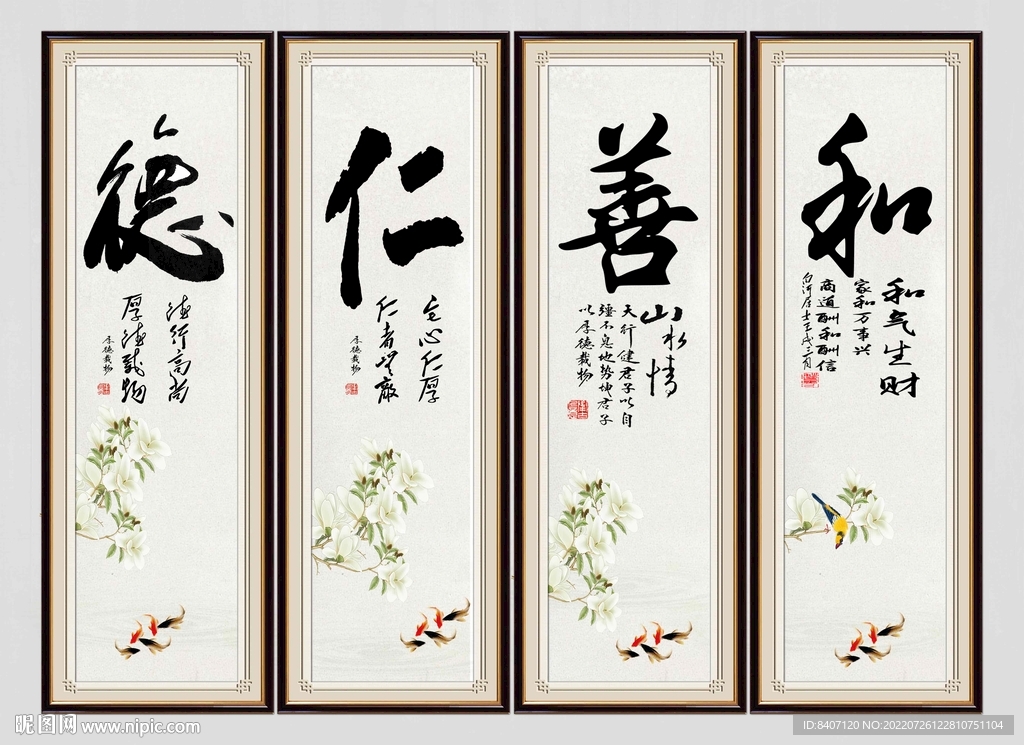 和
和气生财
家和万事兴
商道酬和酬信
善
山水情
天行健君子以自
彊不息地势坤君子
以厚德载物
仁
宅心仁厚
仁者無敵
厚德载物
德
德行高尚
厚德載物
厚德载物
昵图网 www.nipic.com
ID:8407120 NO:20220726122810751104